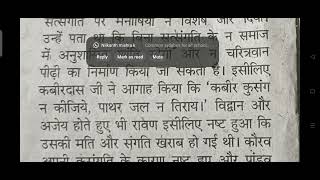 सत्संगति पर मनीषियों ने विशेष जोर दिया
उन्हें पता था कि बिना सत्संगति के न समाज
Nilkanth matrus
Common
Reply Mark as read Mute
में अनुशासन न चरित्रवान
पीढ़ी का निर्माण किया जा सकता है। इसीलिए
कबीरदास जी ने आगाह किया कि 'कबीर कुसंग
न कीजिये, पाथर जल न तिराय।' विद्वान और
अजेय होते हुए भी रावण इसीलिए नष्ट हुआ कि
उसकी मति और संगति खराब हो गई थी। कौरव
अपनी कुसंगति के कारण नष्ट हुए और पांडव